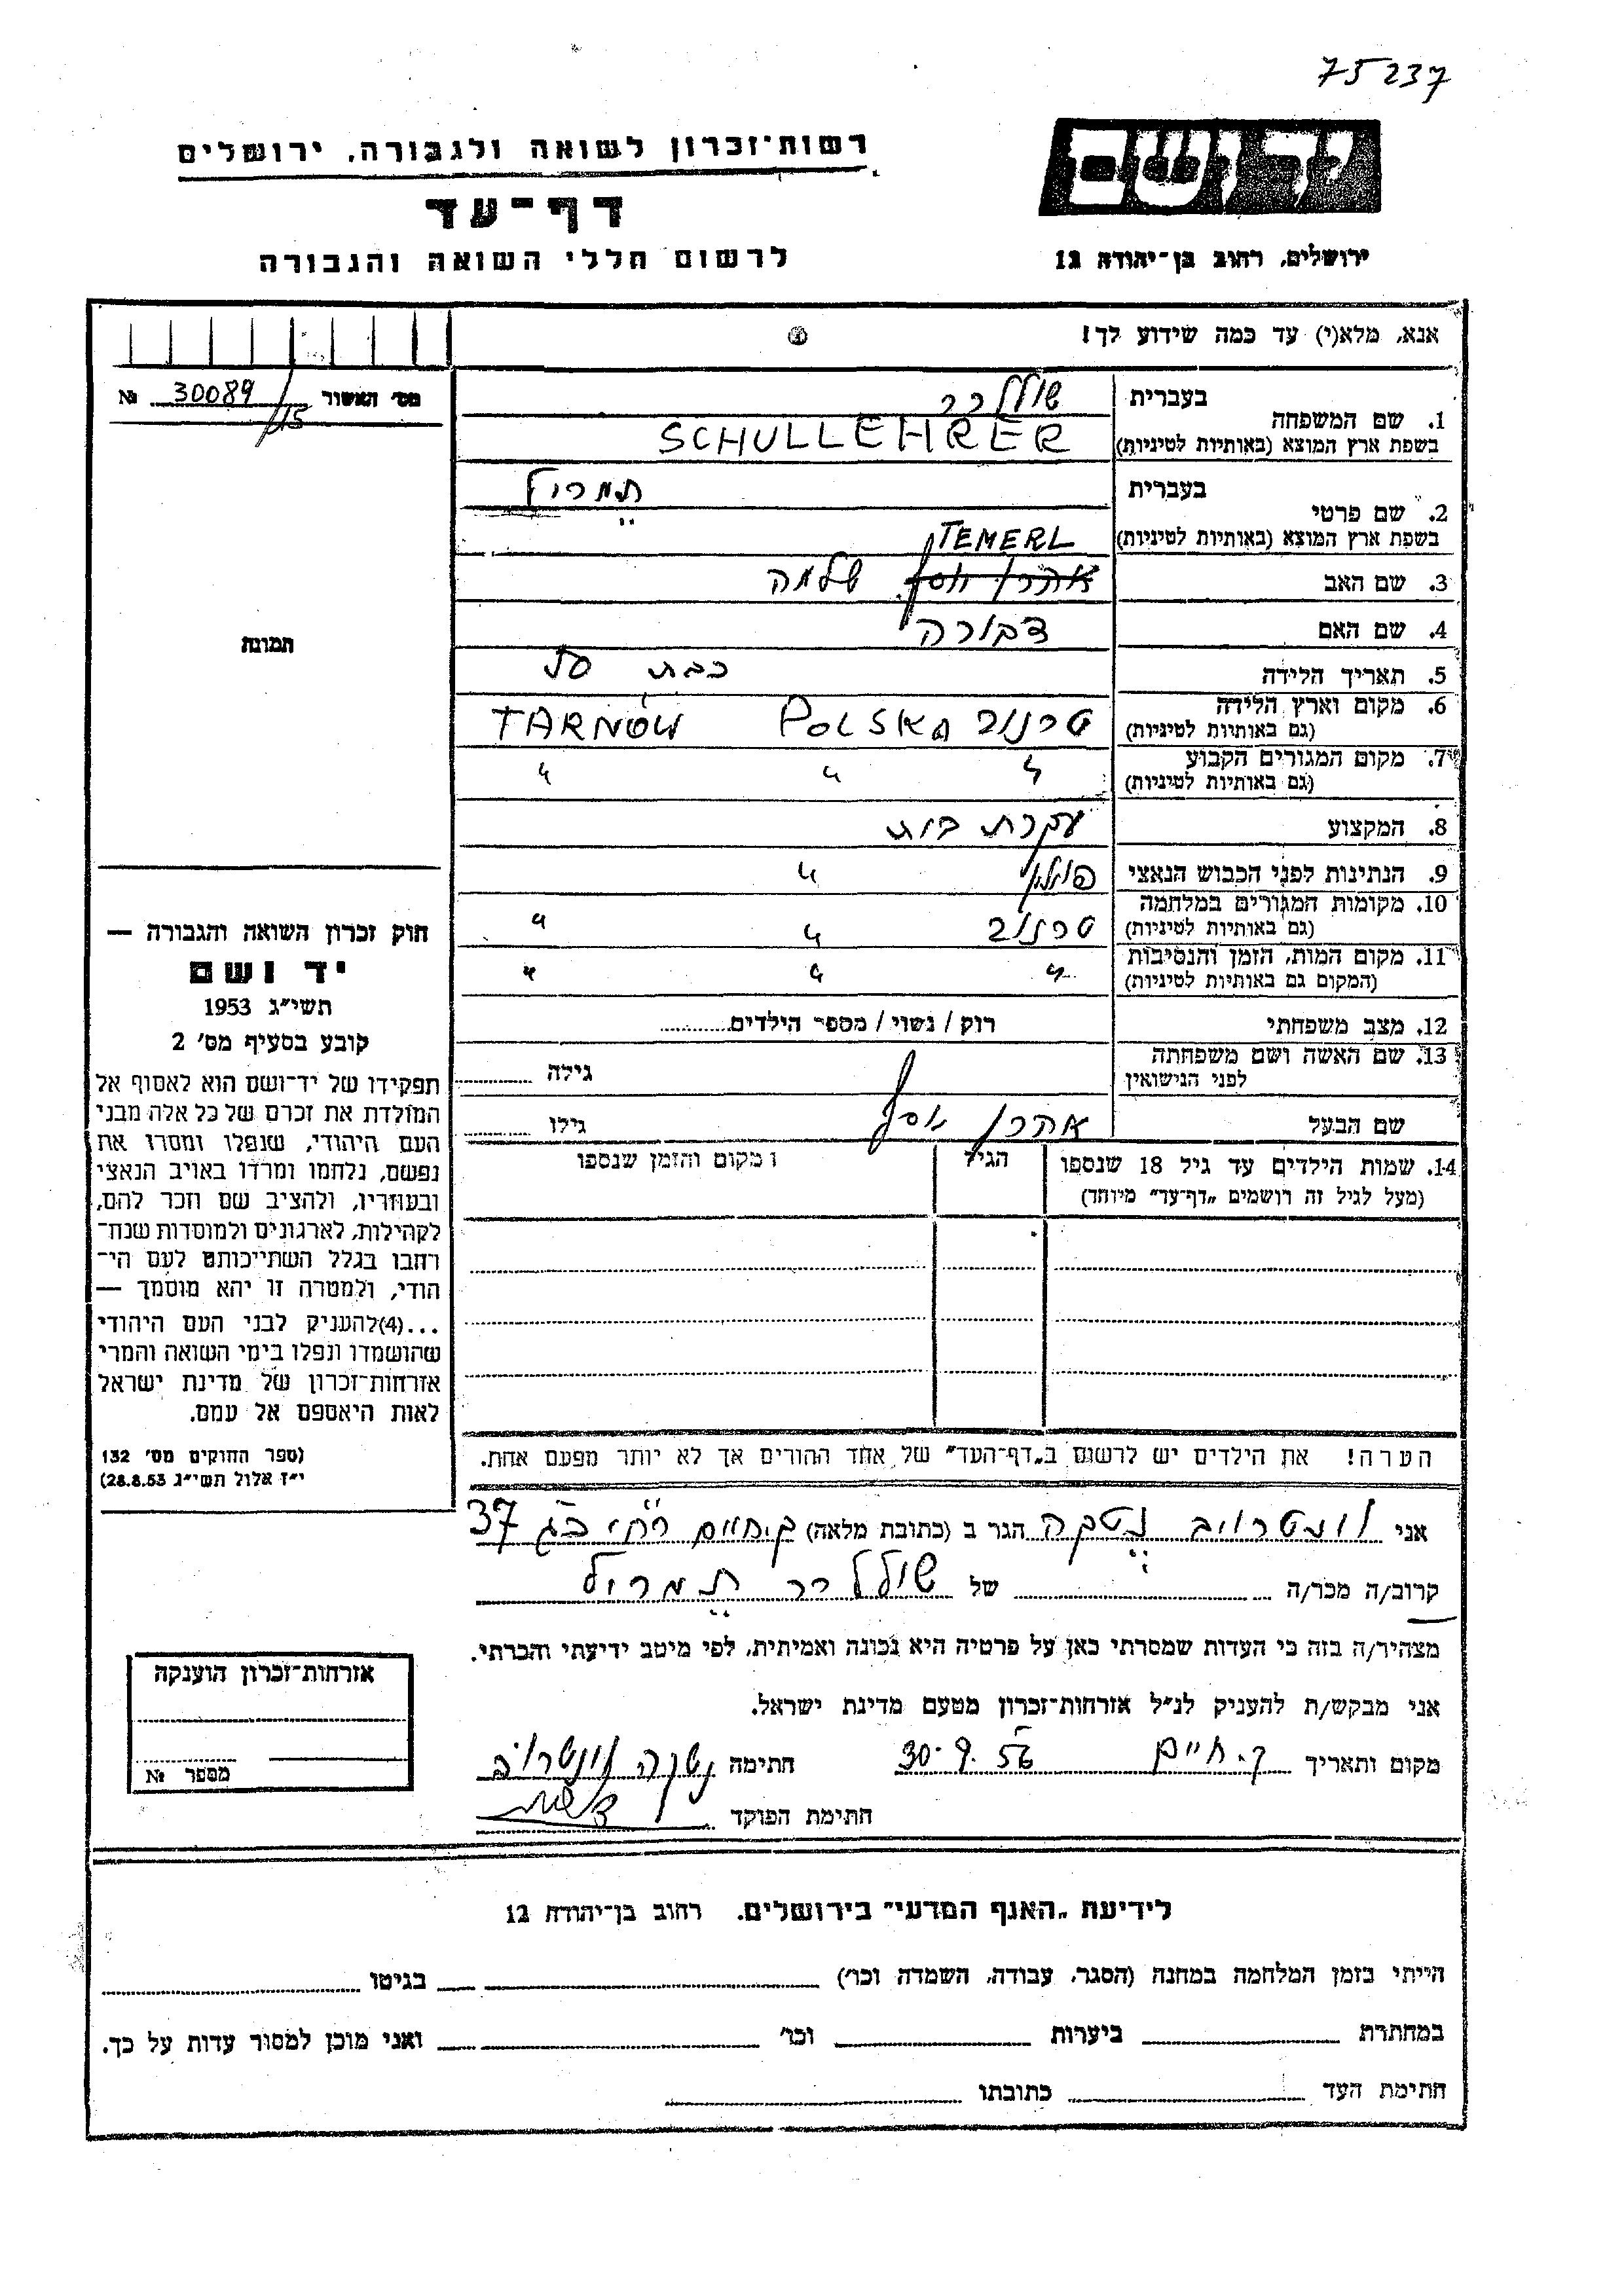 75237
רשות־זכרון לשואה ולגבורה, ירושלים
יד ושם
דף־עד
לרשום חללי השואה והגבורה
ירושלים, רחוב בן־יהודה 12
אנא, מלא(י) עד כמה שידוע לך!
מס׳ האשור 30089/15 №
1. שם המשפחה בעברית שוללרר
בשפת ארץ המוצא (באותיות לטיניות) SCHULLEHRER
2. שם פרטי בעברית תמריל
בשפת ארץ המוצא (באותיות לטיניות) TEMERL
3. שם האב אהרן יוסף שלמה
4. שם האם דבורה
5. תאריך הלידה כבת 50
6. מקום וארץ הלידה טרנוב POLSKA TARNÓW
(גם באותיות לטיניות)
7. מקום המגורים הקבוע " " "
(גם באותיות לטיניות)
8. המקצוע עקרת בית
9. הנתינות לפני הכבוש הנאצי פולין "
10. מקומות המגורים במלחמה טרנוב " "
(גם באותיות לטיניות)
11. מקום המות, הזמן והנסיבות " " "
(המקום גם באותיות לטיניות)
12. מצב משפחתי רוק / נשוי / מספר הילדים
13. שם האשה ושם משפחתה גילה
לפני הנישואין
שם הבעל אהרן יוסף גילו
14. שמות הילדים עד גיל 18 שנספו הגיל ו מקום והזמן שנספו
(מעל לגיל זה רושמים „דף־עד" מיוחד)
תמונה
חוק זכרון השואה והגבורה —
יד ושם
תשי״ג 1953
קובע בסעיף מס׳ 2
תפקידו של יד־ושם הוא לאסוף אל
המולדת את זכרם של כל אלה מבני
העם היהודי, שנפלו ומסרו את
נפשם, נלחמו ומרדו באויב הנאצי
ובעוזריו, ולהציב שם וזכר להם,
לקהילות, לארגונים ולמוסדות שנח־
רחבו בגלל השתייכותם לעם הי־
הודי, ולמטרה זו יהא מוסמך —
...(4)להעניק לבני העם היהודי
שהושמדו ונפלו בימי השואה והמרי
אזרחות־זכרון של מדינת ישראל
לאות היאספם אל עמם.
(ספר החוקים מס׳ 132
י״ז אלול תשי״ג 28.8.53)
הערה! את הילדים יש לרשום ב„דף־העד" של אחד ההורים אך לא יותר מפעם אחת.
אני וונטרויב נטקה הגר ב (כתובת מלאה) ק. חיים 37
קרוב/ה מכר/ה של שוללרר תמריל
מצהיר/ה בזה כי העדות שמסרתי כאן על פרטיה היא נכונה ואמיתית, לפי מיטב ידיעתי והכרתי.
אני מבקש/ת להעניק לנ״ל אזרחות־זכרון מטעם מדינת ישראל.
מקום ותאריך ק. חיים 30.9.56 חתימה נטקה וונטרויב
חתימת הפוקד
אזרחות־זכרון הוענקה
מספר №
לידיעת „האגף המדעי" בירושלים, רחוב בן־יהודה 12
הייתי בזמן המלחמה במחנה (הסגר, עבודה, השמדה וכו׳) בגיטו
במחתרת ביערות וכו׳ ואני מוכן למסור עדות על כך.
חתימת העד כתובתו